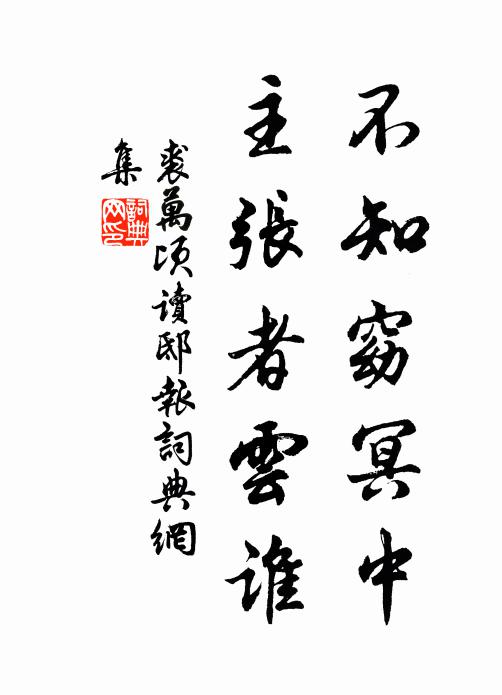 不知窈冥中
主張者雲誰
裘萬頃讀邸報詞典網
集
詞典網印